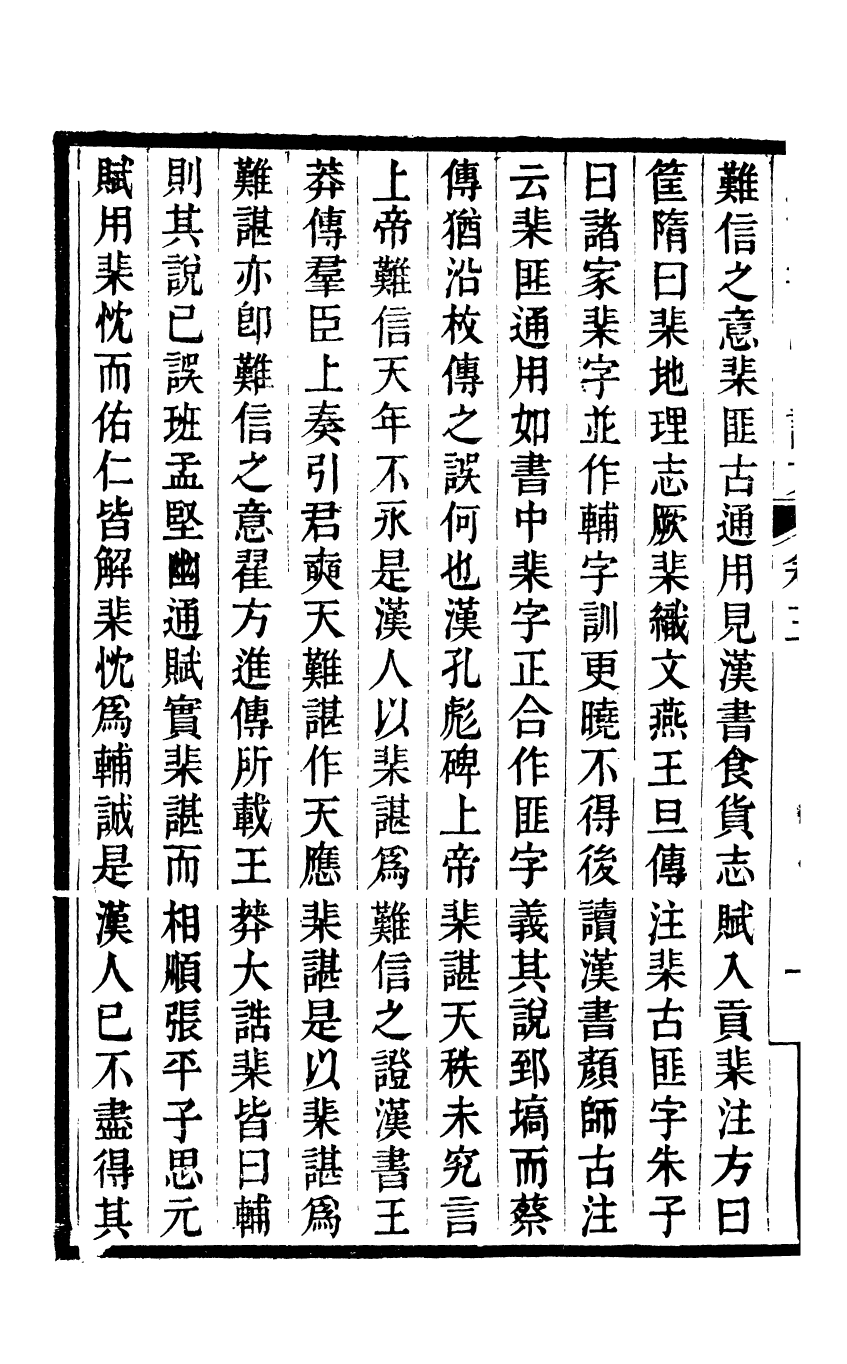 難信之意棐匪古通用見漢書食貨志賦入貢棐注方曰
筐隋曰棐地理志厥棐織文燕王旦傳注棐古匪字朱子
曰諸家棐字並作輔字訓更曉不得後讀漢書顏師古注
云棐匪通用如書中棐字正合作匪字義其說郅塙而蔡
傳猶沿枚傳之誤何也漢孔彪碑上帝棐諶天秩未究言
上帝難信天年不永是漢人以棐諶爲難信之證漢書王
莽傳羣臣上奏引君奭天難諶作天應棐諶是以棐諶爲
難諶亦卽難信之意翟方進傳所載王莽大誥棐皆曰輔
則其說已誤班孟堅幽通賦實棐諶而相順張平子思元
賦用棐忱而佑仁皆解棐忱爲輔誠是漢人已不盡得其